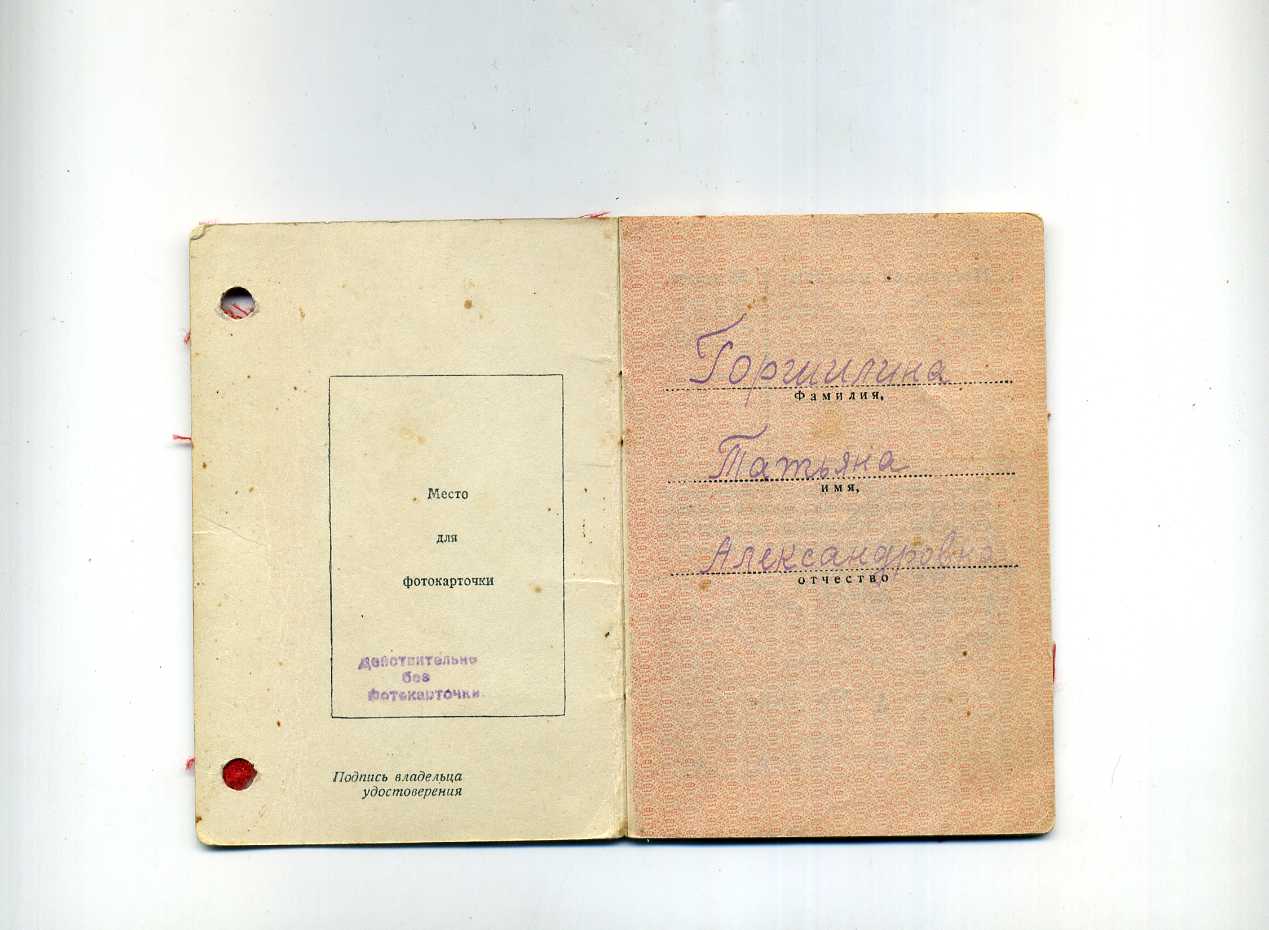 Место
для
фотокарточки
Действительно
без
фотокарточки
Подпись владельца
удостоверения
Горшилина
Фамилия,
Татьяна
имя,
Александровна
отчество